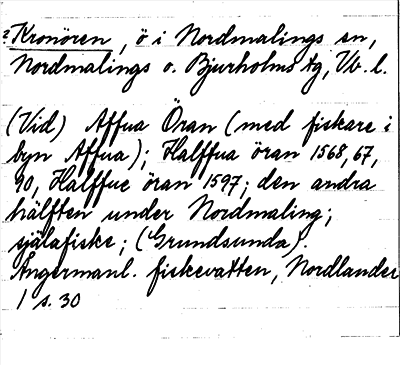 ? Kronören, ö i Nordmalings sn,
Nordmalings o. Bjurholms tg, Vb. l.
(Vid) Affua Öran (med fiskare i
byn Affua); Halffua öran 1568, 67,
90, Halffue öran 1597; den andra
hälften under Nordmaling;
själafiske; (Grundsunda).
Ångermanl. fiskevatten, Nordlander
1 s. 30